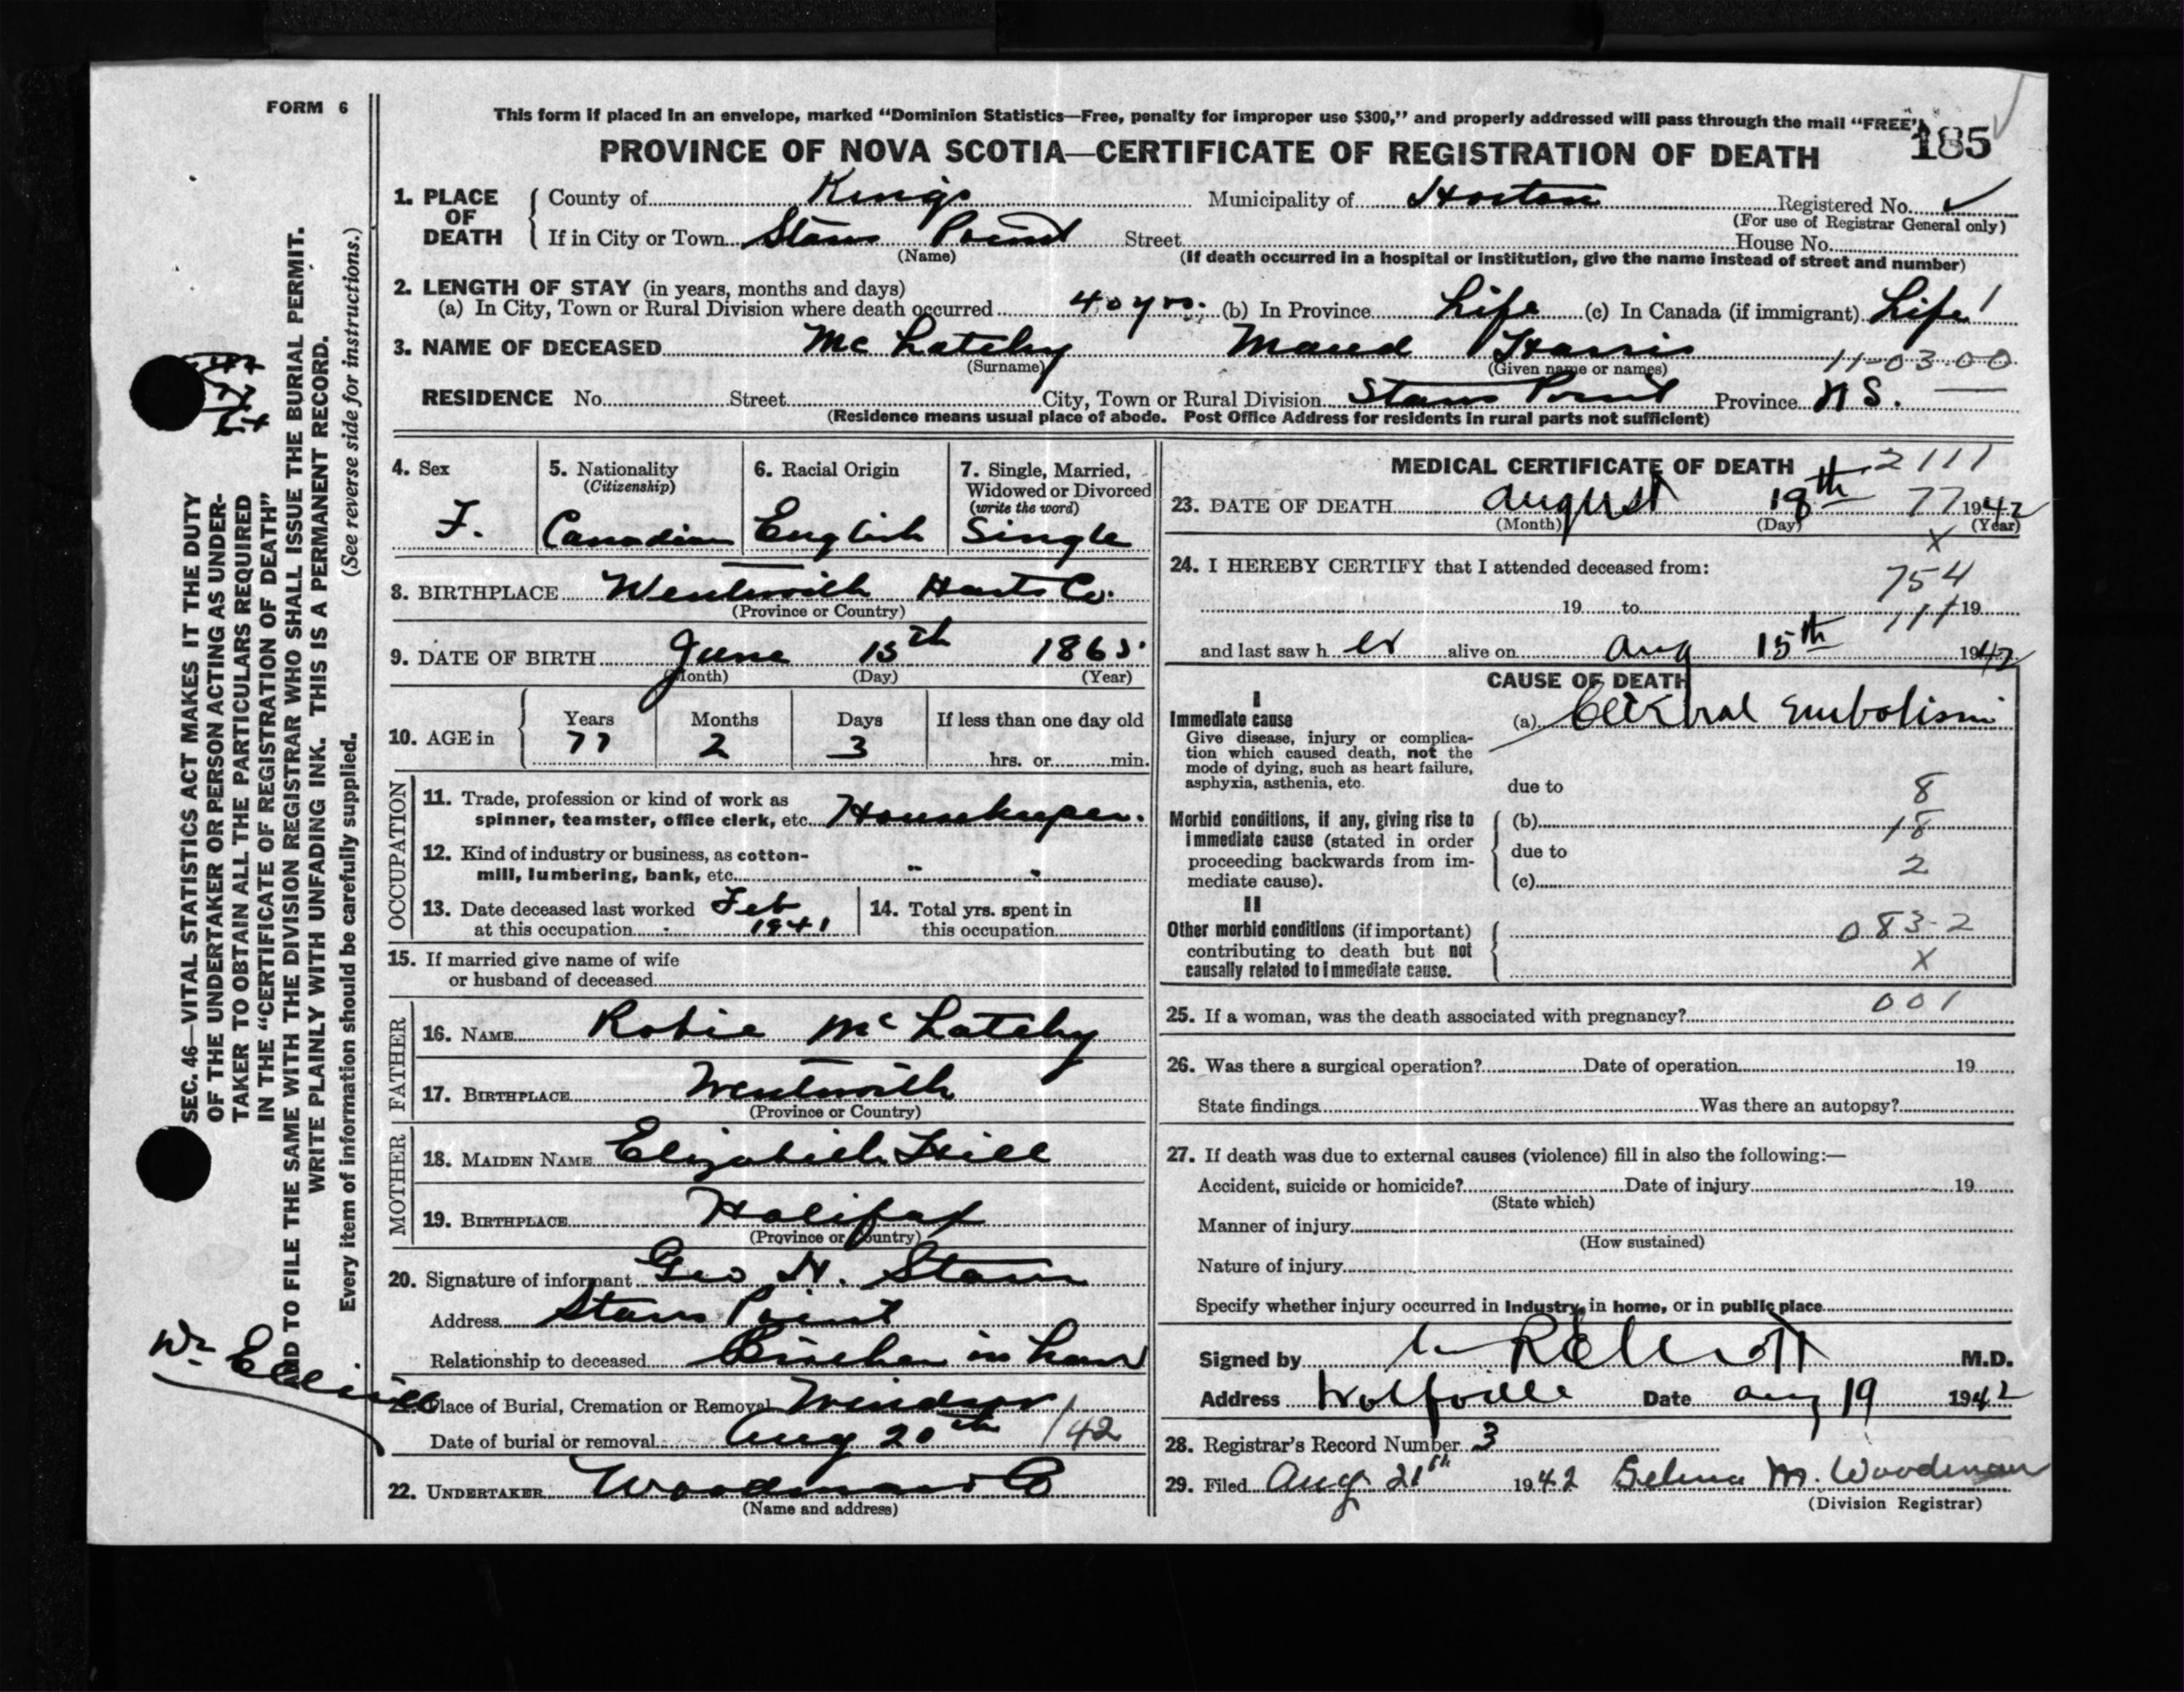 FORM 6
This form if placed in an envelope, marked "Dominion Statistics—Free, penalty for improper use $300," and properly addressed will pass through the mail "FREE".
185
PROVINCE OF NOVA SCOTIA—CERTIFICATE OF REGISTRATION OF DEATH
1. PLACE OF DEATH
County of Kings Municipality of Horton Registered No.
(For use of Registrar General only)
If in City or Town Stars Point Street House No.
(Name) (If death occurred in a hospital or institution, give the name instead of street and number)
2. LENGTH OF STAY (in years, months and days)
(a) In City, Town or Rural Division where death occurred 40 yrs. (b) In Province Life (c) In Canada (if immigrant) Life
3. NAME OF DECEASED Mc Latchy Maud Harris
(Surname) (Given name or names) 11-03-00
RESIDENCE No. Street City, Town or Rural Division Stars Point Province N S.
(Residence means usual place of abode. Post Office Address for residents in rural parts not sufficient)
4. Sex F.
5. Nationality (Citizenship) Canadian
6. Racial Origin English
7. Single, Married, Widowed or Divorced (write the word) Single
8. BIRTHPLACE Wentworth Hants Co.
(Province or Country)
9. DATE OF BIRTH June 15th 1865
(Month) (Day) (Year)
10. AGE in Years 77 Months 2 Days 3 If less than one day old
hrs. or min.
OCCUPATION
11. Trade, profession or kind of work as
spinner, teamster, office clerk, etc. Housekeeper.
12. Kind of industry or business, as cotton-
mill, lumbering, bank, etc. " "
13. Date deceased last worked at this occupation Feb 1941
14. Total yrs. spent in this occupation
15. If married give name of wife
or husband of deceased
FATHER
16. NAME Robie Mc Latchy
17. BIRTHPLACE Wentworth
(Province or Country)
MOTHER
18. MAIDEN NAME Elizabeth Hill
19. BIRTHPLACE Halifax
(Province or Country)
20. Signature of informant Geo H. Starr
Address Stars Point
Relationship to deceased Brother in Law
21. Place of Burial, Cremation or Removal Windsor
Date of burial or removal Aug 20th /42
22. UNDERTAKER Woodman Co
(Name and address)
MEDICAL CERTIFICATE OF DEATH 2111
23. DATE OF DEATH August 18th 77 1942
(Month) (Day) (Year)
X
24. I HEREBY CERTIFY that I attended deceased from:
754
19 to 111 19
and last saw her alive on Aug 15th 1942
CAUSE OF DEATH
I
Immediate cause (a) Cerebral Embolism
Give disease, injury or complica-
tion which caused death, not the
mode of dying, such as heart failure,
asphyxia, asthenia, etc.
due to 8
Morbid conditions, if any, giving rise to (b) 18
immediate cause (stated in order due to
proceeding backwards from im- 2
mediate cause). (c)
II
Other morbid conditions (if important) 083-2
contributing to death but not
causally related to immediate cause. X
001
25. If a woman, was the death associated with pregnancy?
26. Was there a surgical operation? Date of operation 19
State findings Was there an autopsy?
27. If death was due to external causes (violence) fill in also the following:—
Accident, suicide or homicide? Date of injury 19
(State which)
Manner of injury
(How sustained)
Nature of injury
Specify whether injury occurred in Industry, in home, or in public place
Signed by M.D.
Address Wolfville Date Aug 19 1942
28. Registrar's Record Number 3
29. Filed Aug 21th 1942 Selma M. Woodman
(Division Registrar)
SEC. 46—VITAL STATISTICS ACT MAKES IT THE DUTY
OF THE UNDERTAKER OR PERSON ACTING AS UNDER-
TAKER TO OBTAIN ALL THE PARTICULARS REQUIRED
IN THE "CERTIFICATE OF REGISTRATION OF DEATH"
AND TO FILE THE SAME WITH THE DIVISION REGISTRAR WHO SHALL ISSUE THE BURIAL PERMIT.
WRITE PLAINLY WITH UNFADING INK. THIS IS A PERMANENT RECORD.
Every item of information should be carefully supplied. (See reverse side for instructions.)